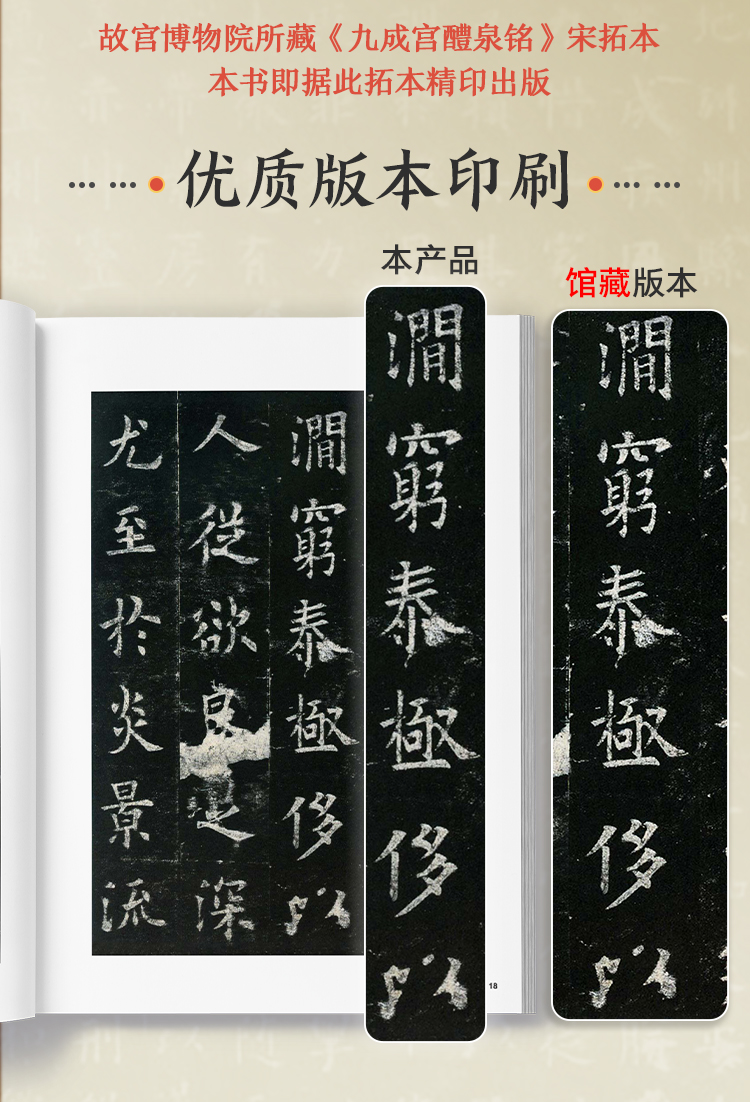 故宫博物院所藏《九成宫醴泉铭》宋拓本
本书即据此拓本精印出版
优质版本印刷
本产品
馆藏版本
澗窮泰極侈以
人從欲良足深
尤至於炎景流
澗窮泰極侈以
澗窮泰極侈以
18